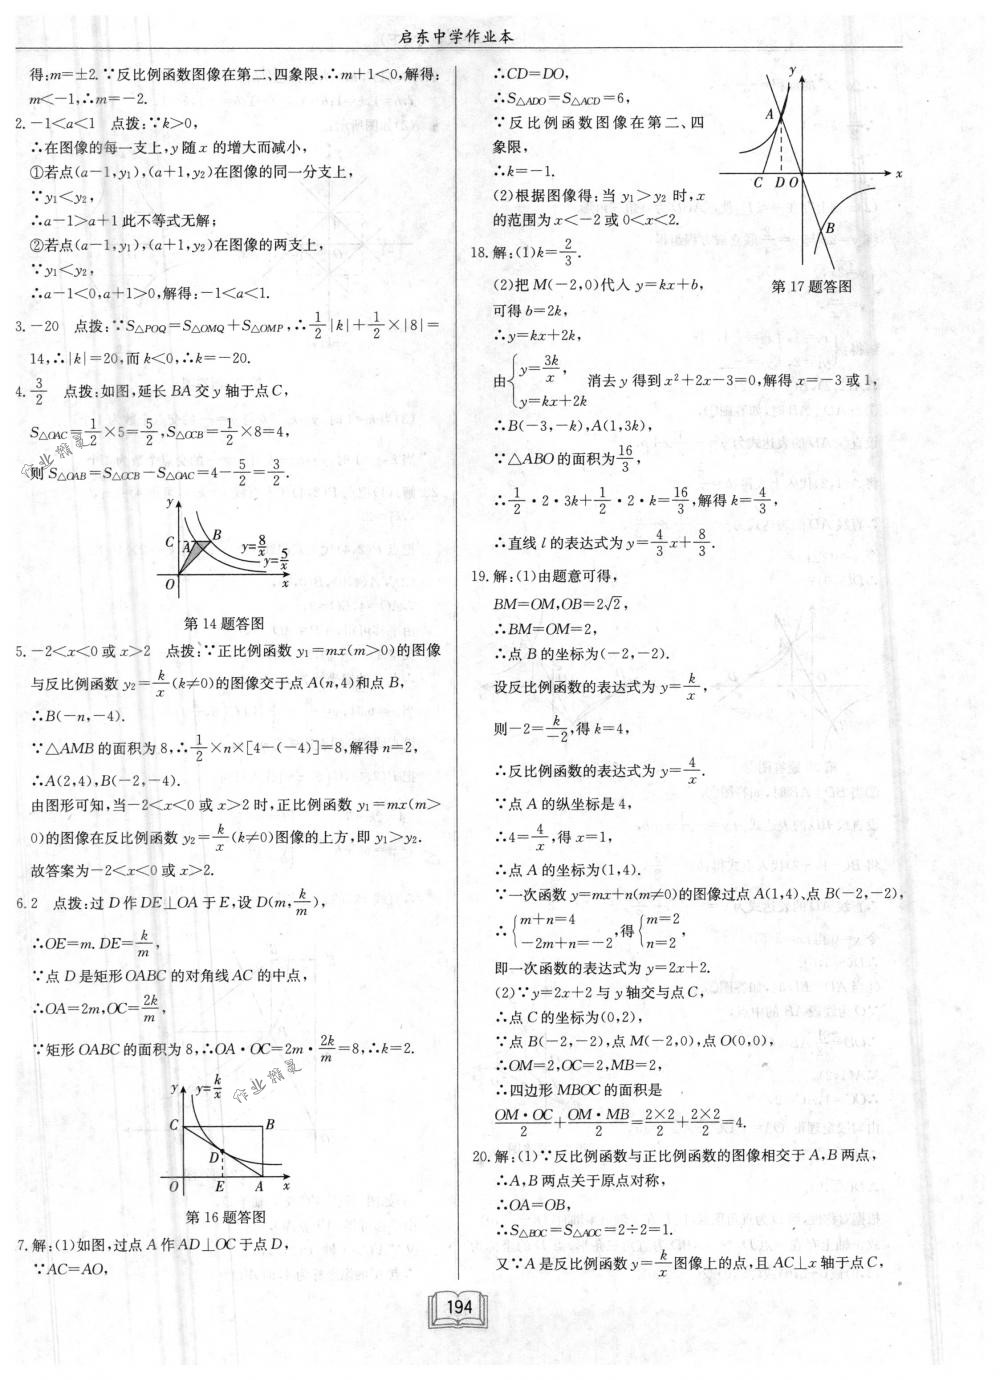 启东中学作业本
得:m=±2.∵反比例函数图像在第二、四象限,∴m+1<0,解得:
m<-1,∴m=-2.
2.-1<a<1　点拨:∵k>0,
∴在图像的每一支上,y随x的增大而减小,
①若点(a-1,y₁),(a+1,y₂)在图像的同一分支上,
∵y₁<y₂,
∴a-1>a+1此不等式无解;
②若点(a-1,y₁),(a+1,y₂)在图像的两支上,
∵y₁<y₂,
∴a-1<0,a+1>0,解得:-1<a<1.
3.-20　点拨:∵S△POQ=S△OMQ+S△OMP,∴1/2|k|+1/2×|8|=
14,∴|k|=20,而k<0,∴k=-20.
4.3/2　点拨:如图,延长BA交y轴于点C,
S△OAC=1/2×5=5/2,S△OCB=1/2×8=4,
则S△OAB=S△OCB-S△OAC=4-5/2=3/2.
y
C A B
y=8/x
y=5/x
O x
第14题答图
5.-2<x<0或x>2　点拨:∵正比例函数y₁=mx(m>0)的图像
与反比例函数y₂=k/x(k≠0)的图像交于点A(n,4)和点B,
∴B(-n,-4).
∵△AMB的面积为8,∴1/2×n×[4-(-4)]=8,解得n=2,
∴A(2,4),B(-2,-4).
由图形可知,当-2<x<0或x>2时,正比例函数y₁=mx(m>
0)的图像在反比例函数y₂=k/x(k≠0)图像的上方,即y₁>y₂.
故答案为-2<x<0或x>2.
6.2　点拨:过D作DE⊥OA于E,设D(m,k/m),
∴OE=m.DE=k/m,
∵点D是矩形OABC的对角线AC的中点,
∴OA=2m,OC=2k/m,
∵矩形OABC的面积为8,∴OA·OC=2m·2k/m=8,∴k=2.
y y=k/x
C B
D
O E A x
第16题答图
7.解:(1)如图,过点A作AD⊥OC于点D,
∵AC=AO,
∴CD=DO,
∴S△ADO=S△ACD=6,
∵反比例函数图像在第二、四
象限,
∴k=-1.
(2)根据图像得:当y₁>y₂时,x
的范围为x<-2或0<x<2.
y
A
C D O x
B
第17题答图
18.解:(1)k=2/3.
(2)把M(-2,0)代入y=kx+b,
可得b=2k,
∴y=kx+2k,
由{y=3k/x,
y=kx+2k　消去y得到x²+2x-3=0,解得x=-3或1,
∴B(-3,-k),A(1,3k),
∵△ABO的面积为16/3,
∴1/2·2·3k+1/2·2·k=16/3,解得k=4/3,
∴直线l的表达式为y=4/3x+8/3.
19.解:(1)由题意可得,
BM=OM,OB=2√2,
∴BM=OM=2,
∴点B的坐标为(-2,-2).
设反比例函数的表达式为y=k/x,
则-2=k/-2,得k=4,
∴反比例函数的表达式为y=4/x.
∵点A的纵坐标是4,
∴4=4/x,得x=1,
∴点A的坐标为(1,4).
∵一次函数y=mx+n(m≠0)的图像过点A(1,4)、点B(-2,-2),
∴{m+n=4
-2m+n=-2,得{m=2
n=2,
即一次函数的表达式为y=2x+2.
(2)∵y=2x+2与y轴交与点C,
∴点C的坐标为(0,2),
∵点B(-2,-2),点M(-2,0),点O(0,0),
∴OM=2,OC=2,MB=2,
∴四边形MBOC的面积是
OM·OC/2+OM·MB/2=2×2/2+2×2/2=4.
20.解:(1)∵反比例函数与正比例函数的图像相交于A,B两点,
∴A,B两点关于原点对称,
∴OA=OB,
∴S△BOC=S△AOC=2÷2=1.
又∵A是反比例函数y=k/x图像上的点,且AC⊥x轴于点C,
作业精灵
作业精灵
194